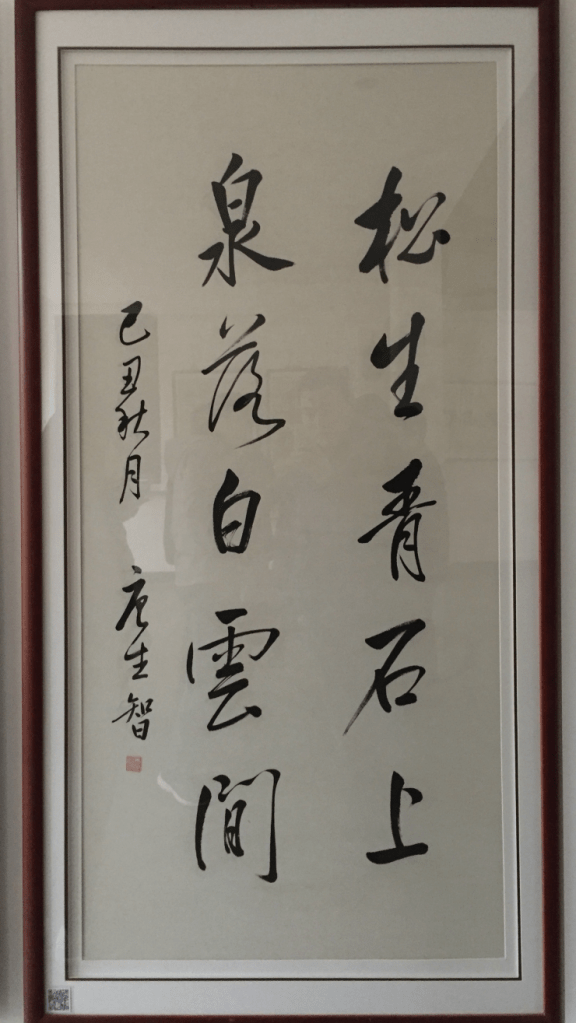 松生青石上
泉落白雲間
己丑秋月 唐生智